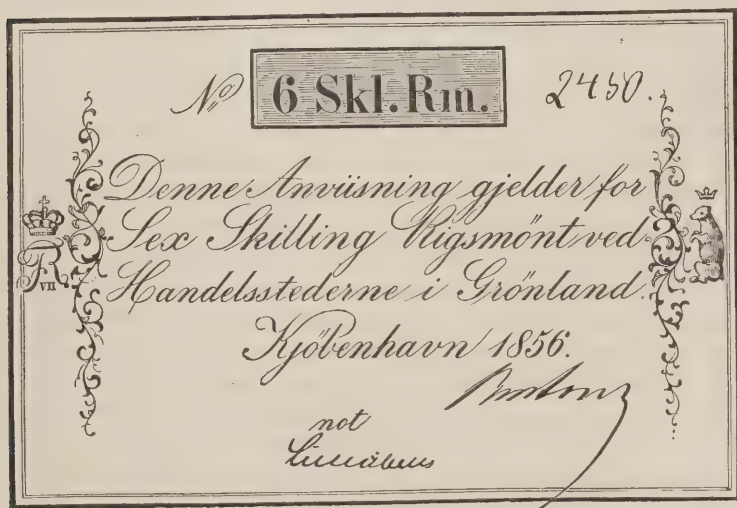 No 6 Skl. Rm. 2450.
Denne Anviisning gjelder for
Sex Skilling Rigsmönt ved
Handelsstederne i Grönland.
Kjöbenhavn 1856.
not
F VII